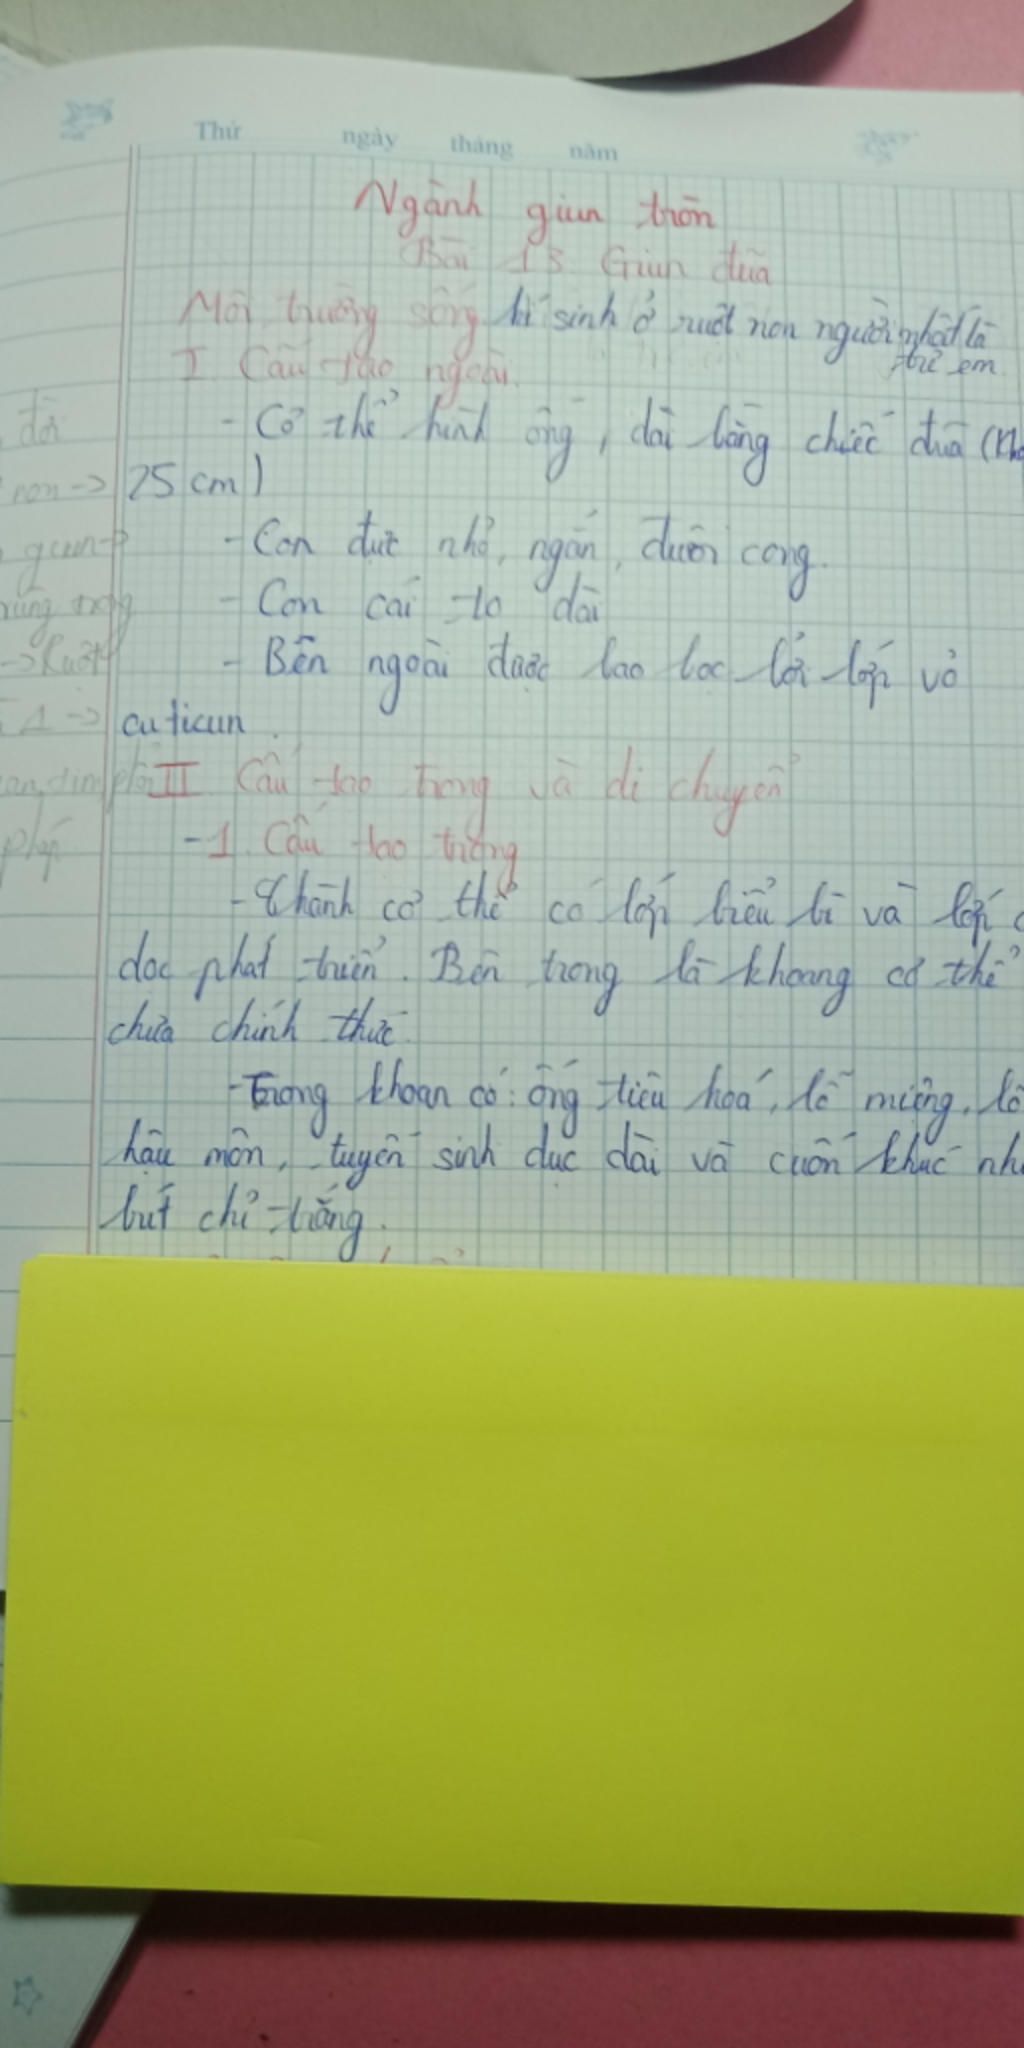 Thứ ngày tháng năm
Ngành giun tròn
Bài 13 Giun đũa
Môi trường sống kí sinh ở ruột non người nhất là
trẻ em
I Cấu tạo ngoài.
- Cơ thể hình ống, dài bằng chiếc đũa (
25 cm)
- Con đực nhỏ, ngắn, đuôi cong.
- Con cái to dài
- Bên ngoài được bao bọc bởi lớp vỏ
cuticun.
II Cấu tạo trong và di chuyển
- 1. Cấu tạo trong
- Thành cơ thể có lớp biểu bì và lớp
dọc phát triển. Bên trong là khoang cơ thể
chưa chính thức.
- Trong khoan có: ống tiêu hoá, lỗ miệng, lỗ
hậu môn, tuyến sinh dục dài và cuốn khúc
bút chỉ trắng.